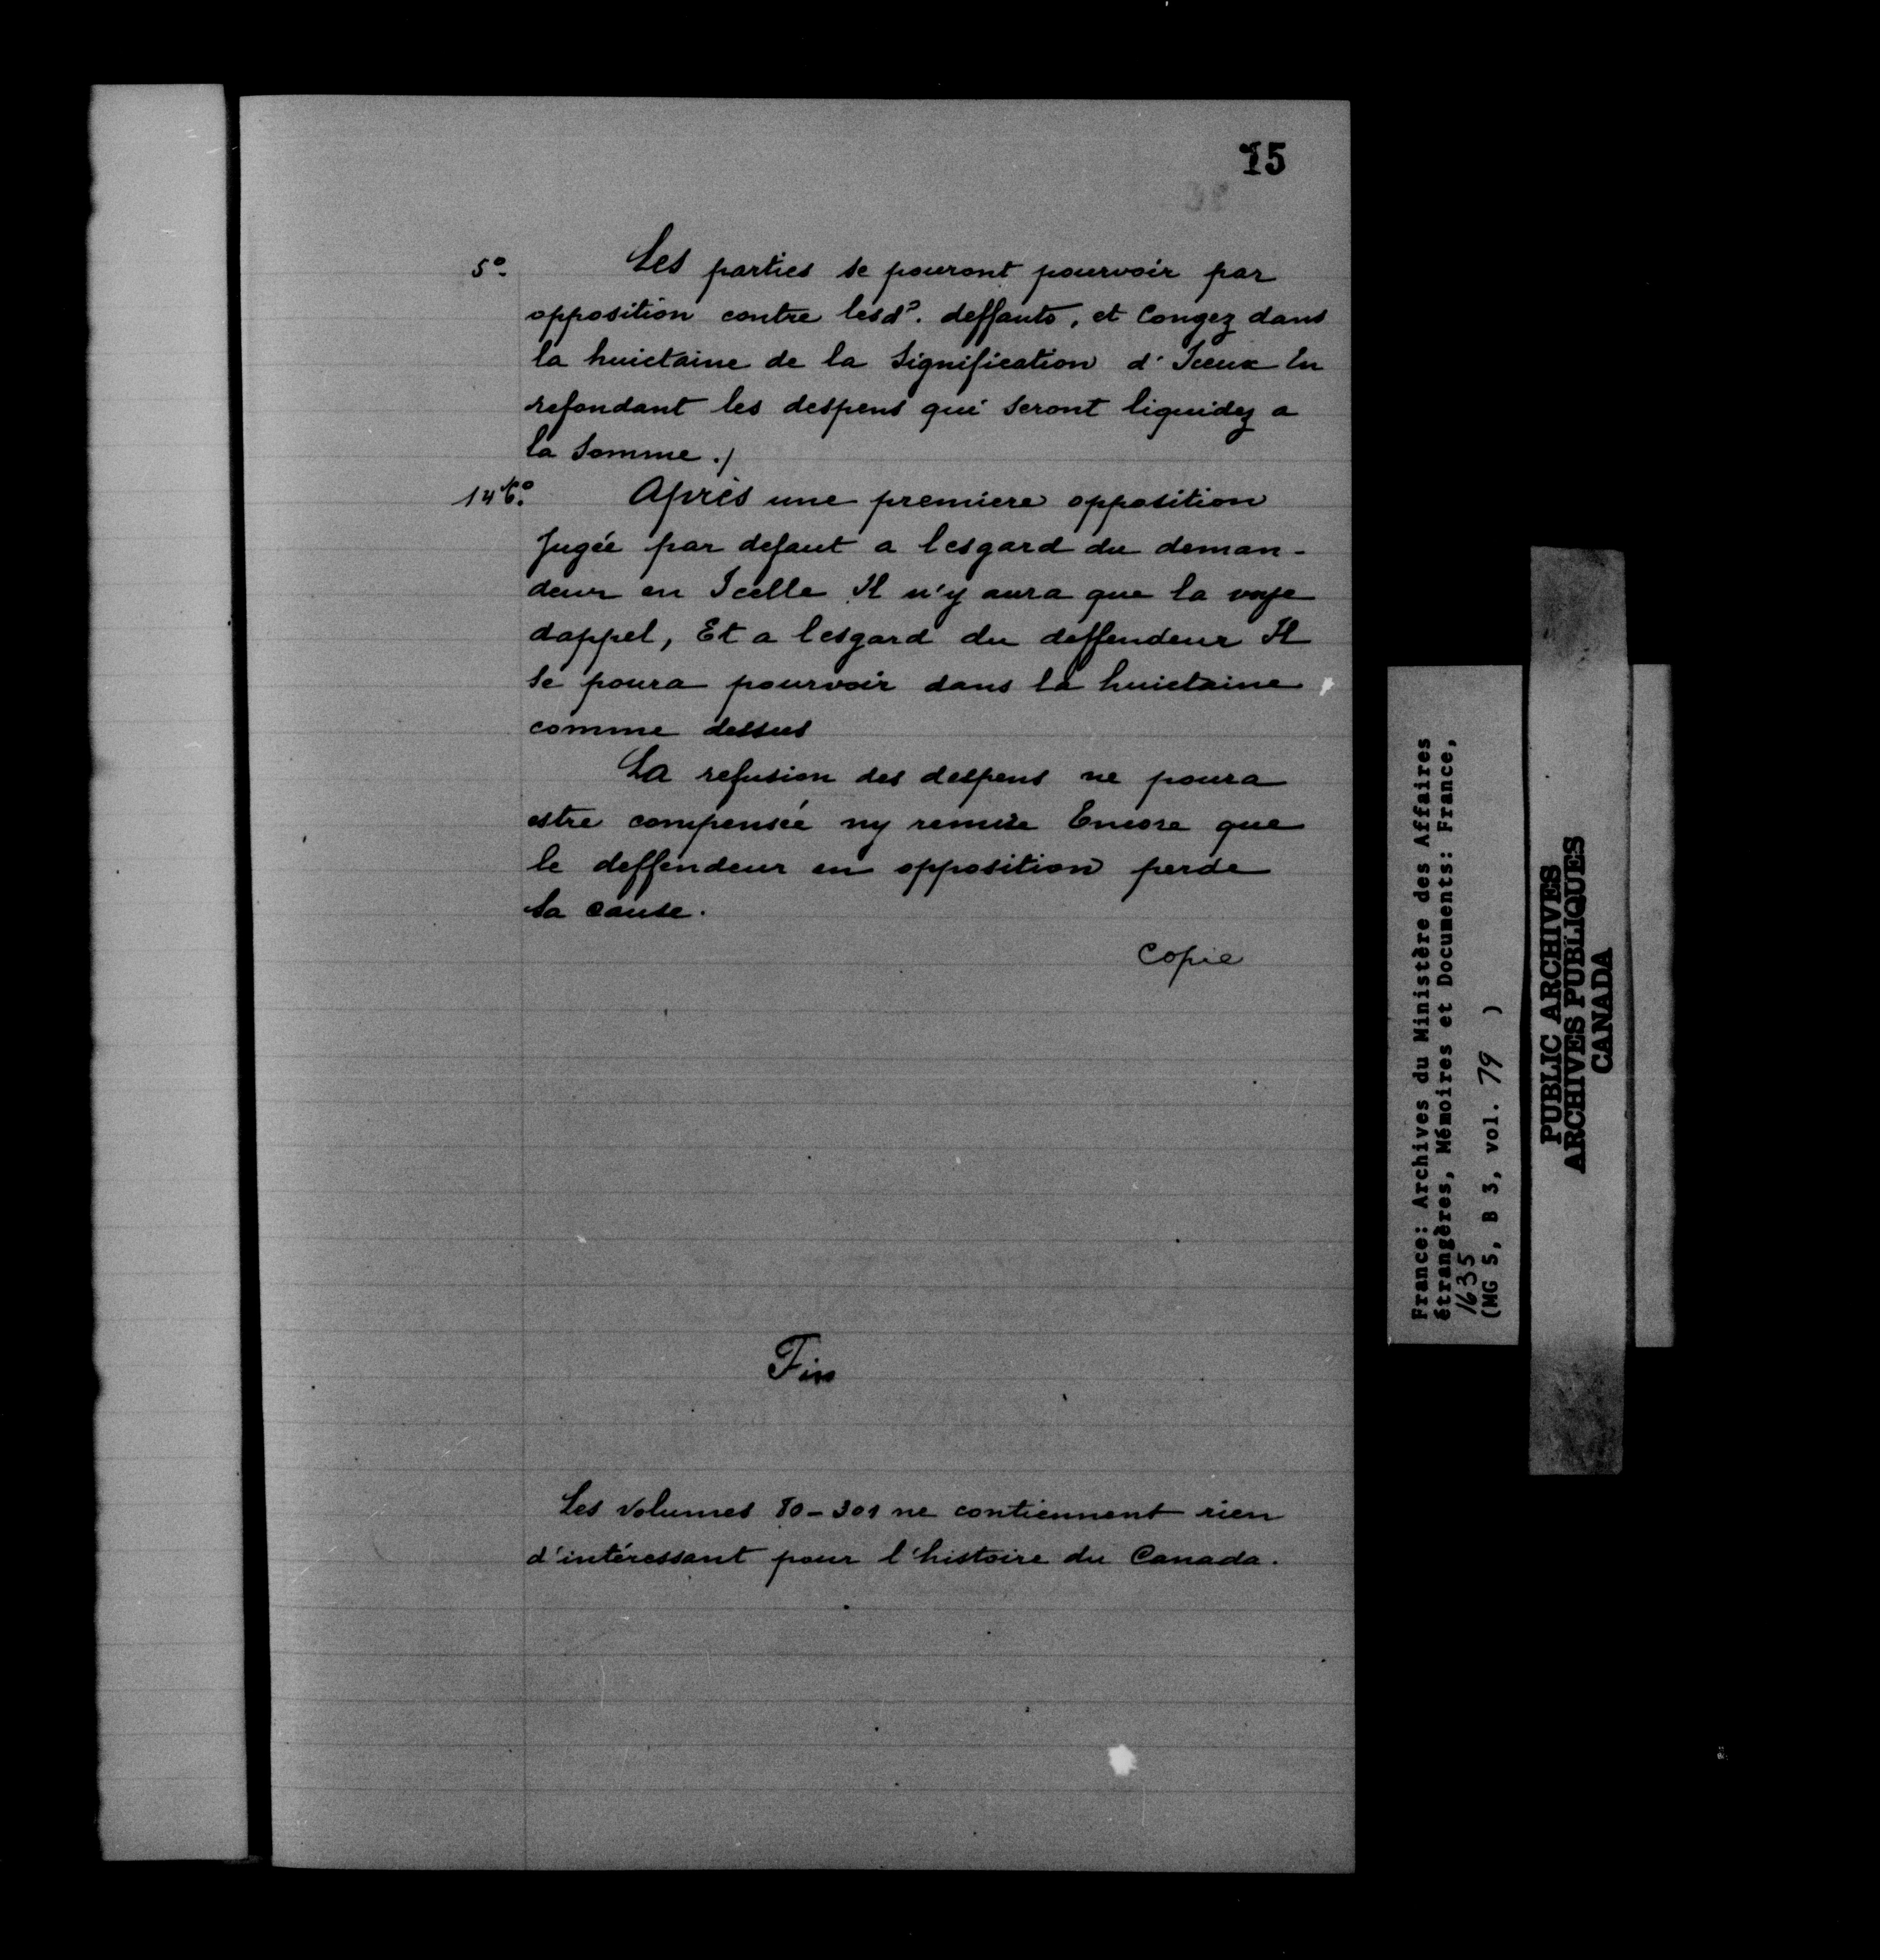 75
5º. Les parties se pouront pourvoir par
opposition contre lesd?. deffauts, et Congez dans
la huictaine de la Signification d'Iceux En
refondant les despens qui seront liquidez a
la Somme ./
Après une premiere opposition
Jugée par defaut a lesgard du deman-
deur en Icelle Il n'y aura que la voye
dappel, Et a lesgard du deffendeur Il
se poura pourvoir dans la huictaine
comme dessus
La refusion des despens ne poura
estre compensée ny remise Encore que
le deffendeur en opposition perde
sa cause.
Copie
Fin
Les volumes 80-301 ne contiennent rien
d'intéressant pour l'histoire du Canada.
France: Archives du Ministère des Affaires
étrangères, Mémoires et Documents: France,
1635
(MG 5, B 3, vol. 79 )
PUBLIC ARCHIVES
ARCHIVES PUBLIQUES
CANADA